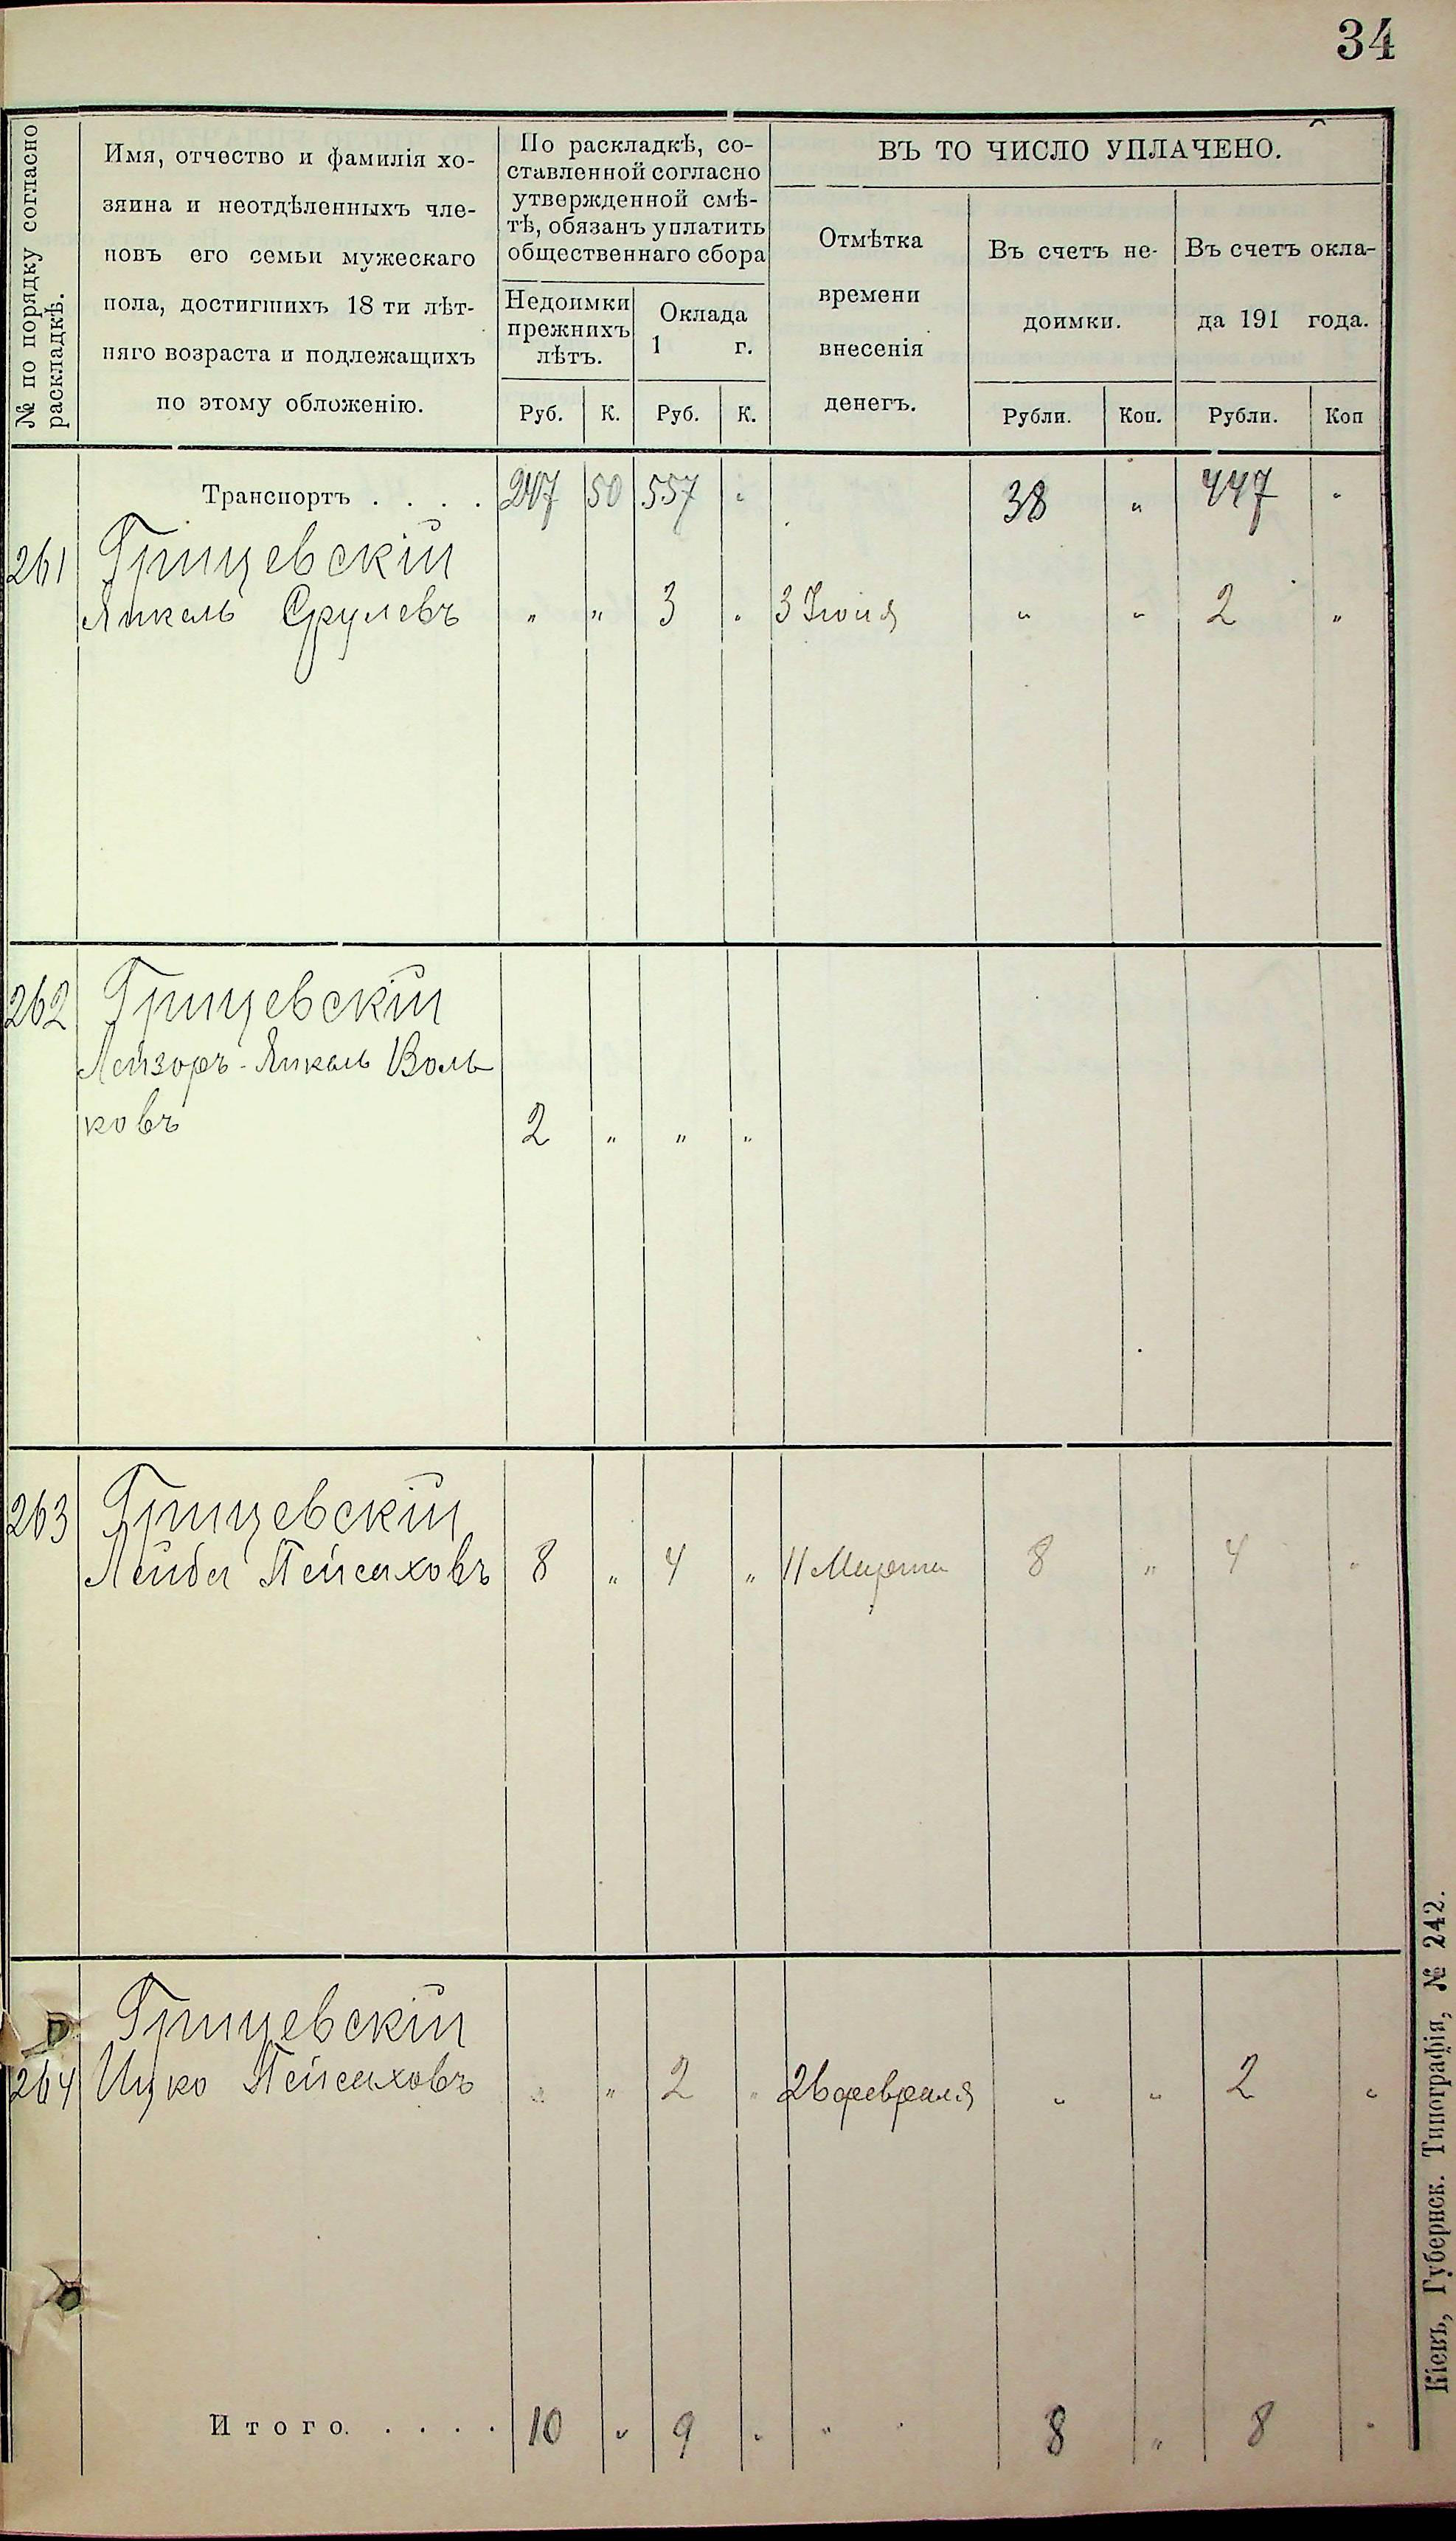 34
№ по порядку согласно
раскладкѣ.
Имя, отчество и фамилія хо-
зяина и неотдѣленныхъ чле-
новъ его семьи мужескаго
пола, достигшихъ 18 ти лѣт-
няго возраста и подлежащихъ
по этому обложенію.
По раскладкѣ, со-
ставленной согласно
утвержденной смѣ-
тѣ, обязанъ уплатить
общественнаго сбора
Недоимки
прежнихъ
лѣтъ.
Оклада
1 г.
ВЪ ТО ЧИСЛО УПЛАЧЕНО.
Отмѣтка
времени
внесенія
денегъ.
Въ счетъ не-
доимки.
Въ счетъ окла-
да 191 года.
Руб. К. Руб. К. Рубли. Коп. Рубли. Коп
Транспортъ . . . . 247 50 557 " 38 " 447 "
261 Грицевскій
Янкель Срулевъ " " 3 " 3 Іюня " " 2 "
262 Грицевскій
Лейзоръ-Янкель Воль
ковъ 2 " " "
263 Грицевскій
Лейба Пейсаховъ 8 " 4 " 11 Марта 8 " 4 "
Грицевскій
264 Ицко Пейсаховъ " " 2 " 26 февраля " " 2 "
Итого. . . . . 10 " 9 " " 8 " 8 "
Кіевъ, Губернск. Типографія, № 242.